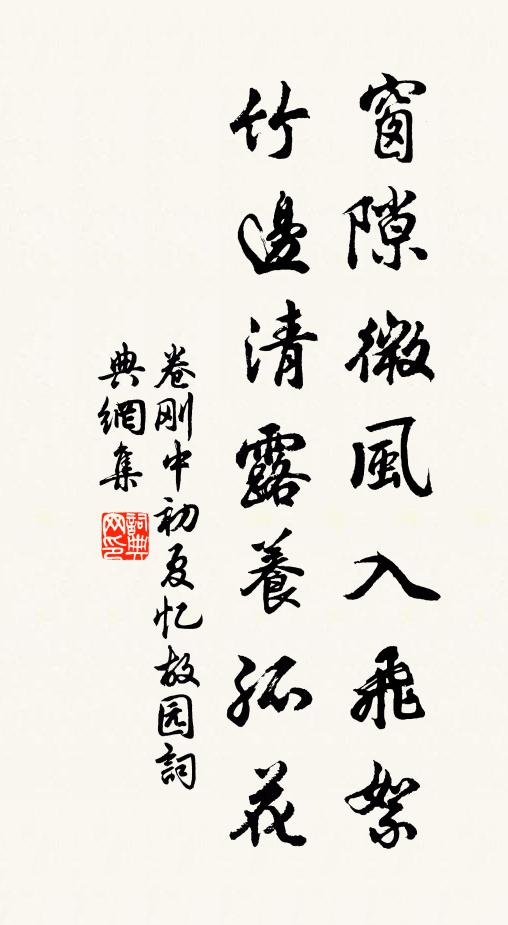 窗隙微風入飛絮
竹邊清露養孤花
卷刚中初夏忆故园詞
典網集
詞典
网印